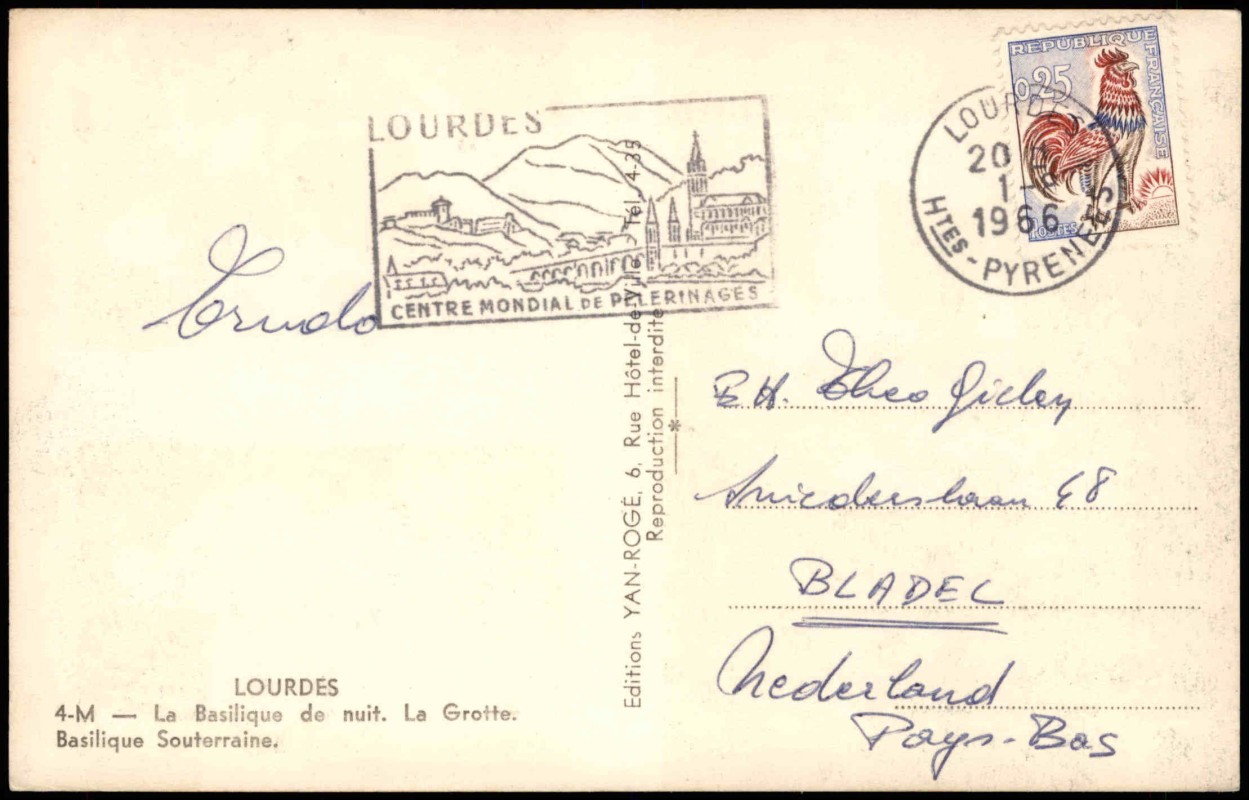 LOURDES
CENTRE MONDIAL DE PELERINAGES
REPUBLIQUE FRANÇAISE
0,25
POSTES
LOURDES
20 H
1 - 
1966
HTES - PYRENEES
Editions YAN-ROGÉ, 6, Rue Hôtel-de-Ville Tel. 4-35
Reproduction interdite
*
Theo
48
BLADEL
Nederland
Pays-Bas
LOURDES
4-M — La Basilique de nuit. La Grotte.
Basilique Souterraine.